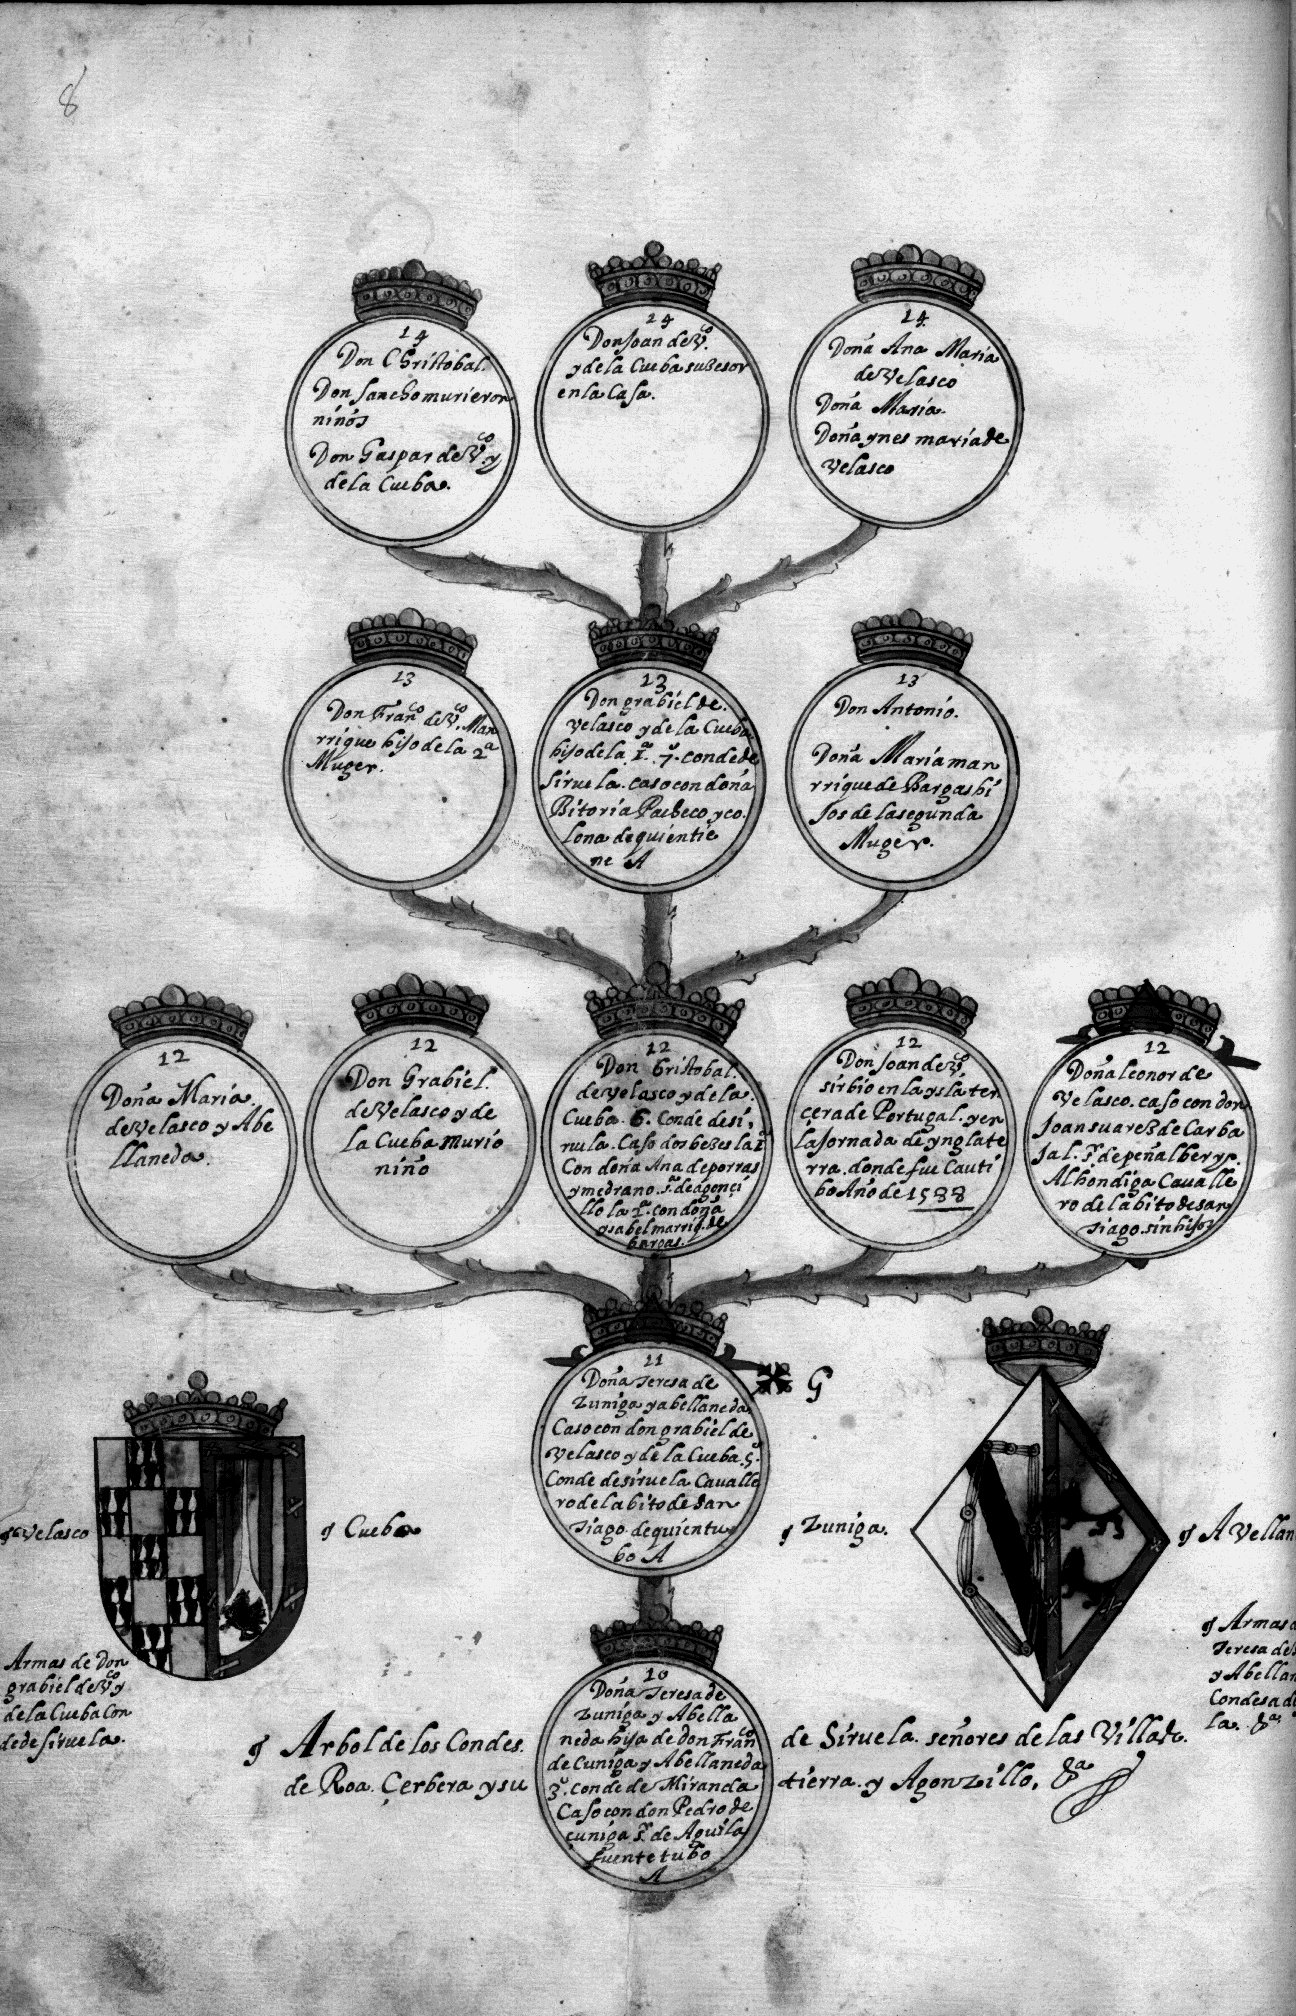 8
14
Don Christobal.
Don Sancho murieron
niños
Don Gaspar de V.co y
de la Cueba.
14
Don Joan de V.co
y de la Cueba subcesor
en la Casa.
14
Doña Ana Maria
de Velasco
Doña Maria.
Doña ynes maria de
Velasco
13
Don Fran.co de V.co Man
rrique hijo de la 2ª
Muger.
13
Don grabiel de
Velasco y de la Cueba
hijo de la 1ª 7º conde de
Siruela. caso con doña
Bitoria Pacheco y co
lona de quien tie
ne A
13
Don Antonio.
Doña Maria man
rrique de Bargas hi
jos de la segunda
Muger.
12
Doña Maria
de Velasco y Abe
llaneda.
12
Don Grabiel
de Velasco y de
la Cueba murio
niño
12
Don Cristobal
de Velasco y de la
Cueba 6. Conde de si
ruela. Caso dos bezes la 1ª
Con doña Ana de porras
y medrano. sª de agonçi
llo la 2ª con doña
ysabel manriq. de
bargas.
12
Don Joan de V.co
sirbio en la ysla ter
çera de Portugal. y en
la Jornada de ynglate
rra. donde fue Cauti
bo Año de 1588
12
Doña leonor de
Velasco. caso con don
Joan suarez de Carba
jal. sr de peñalber y
Alhondiga Cavalle
ro de labito de san
tiago. sin hijos
11
Doña Teresa de
Zuniga y abellaneda
Caso con don grabiel de
Velasco y de la Cueba. 5º
Conde de siruela Cavalle
ro de labito de San
tiago de quien tu
bo A
G
qº Velasco
q Cueba
q Zuniga.
q Avellan
Armas de Don
grabiel de V.co y
de la Cueba Con
de de siruela.
q Armas d
Teresa de
y Abellan
Condesa de
la. &ª
10
Doña Teresa de
Zuniga y Abella
neda hija de don Fran.co
de Cuniga y Abellaneda
3º conde de Miranda
Caso con don Pedro de
çuniga sr de Aguila
fuente tubo
A
q Arbol de los Condes. de Siruela. señores de las Villas.
de Roa. Çerbera y su tierra. y Agonzillo, &ª